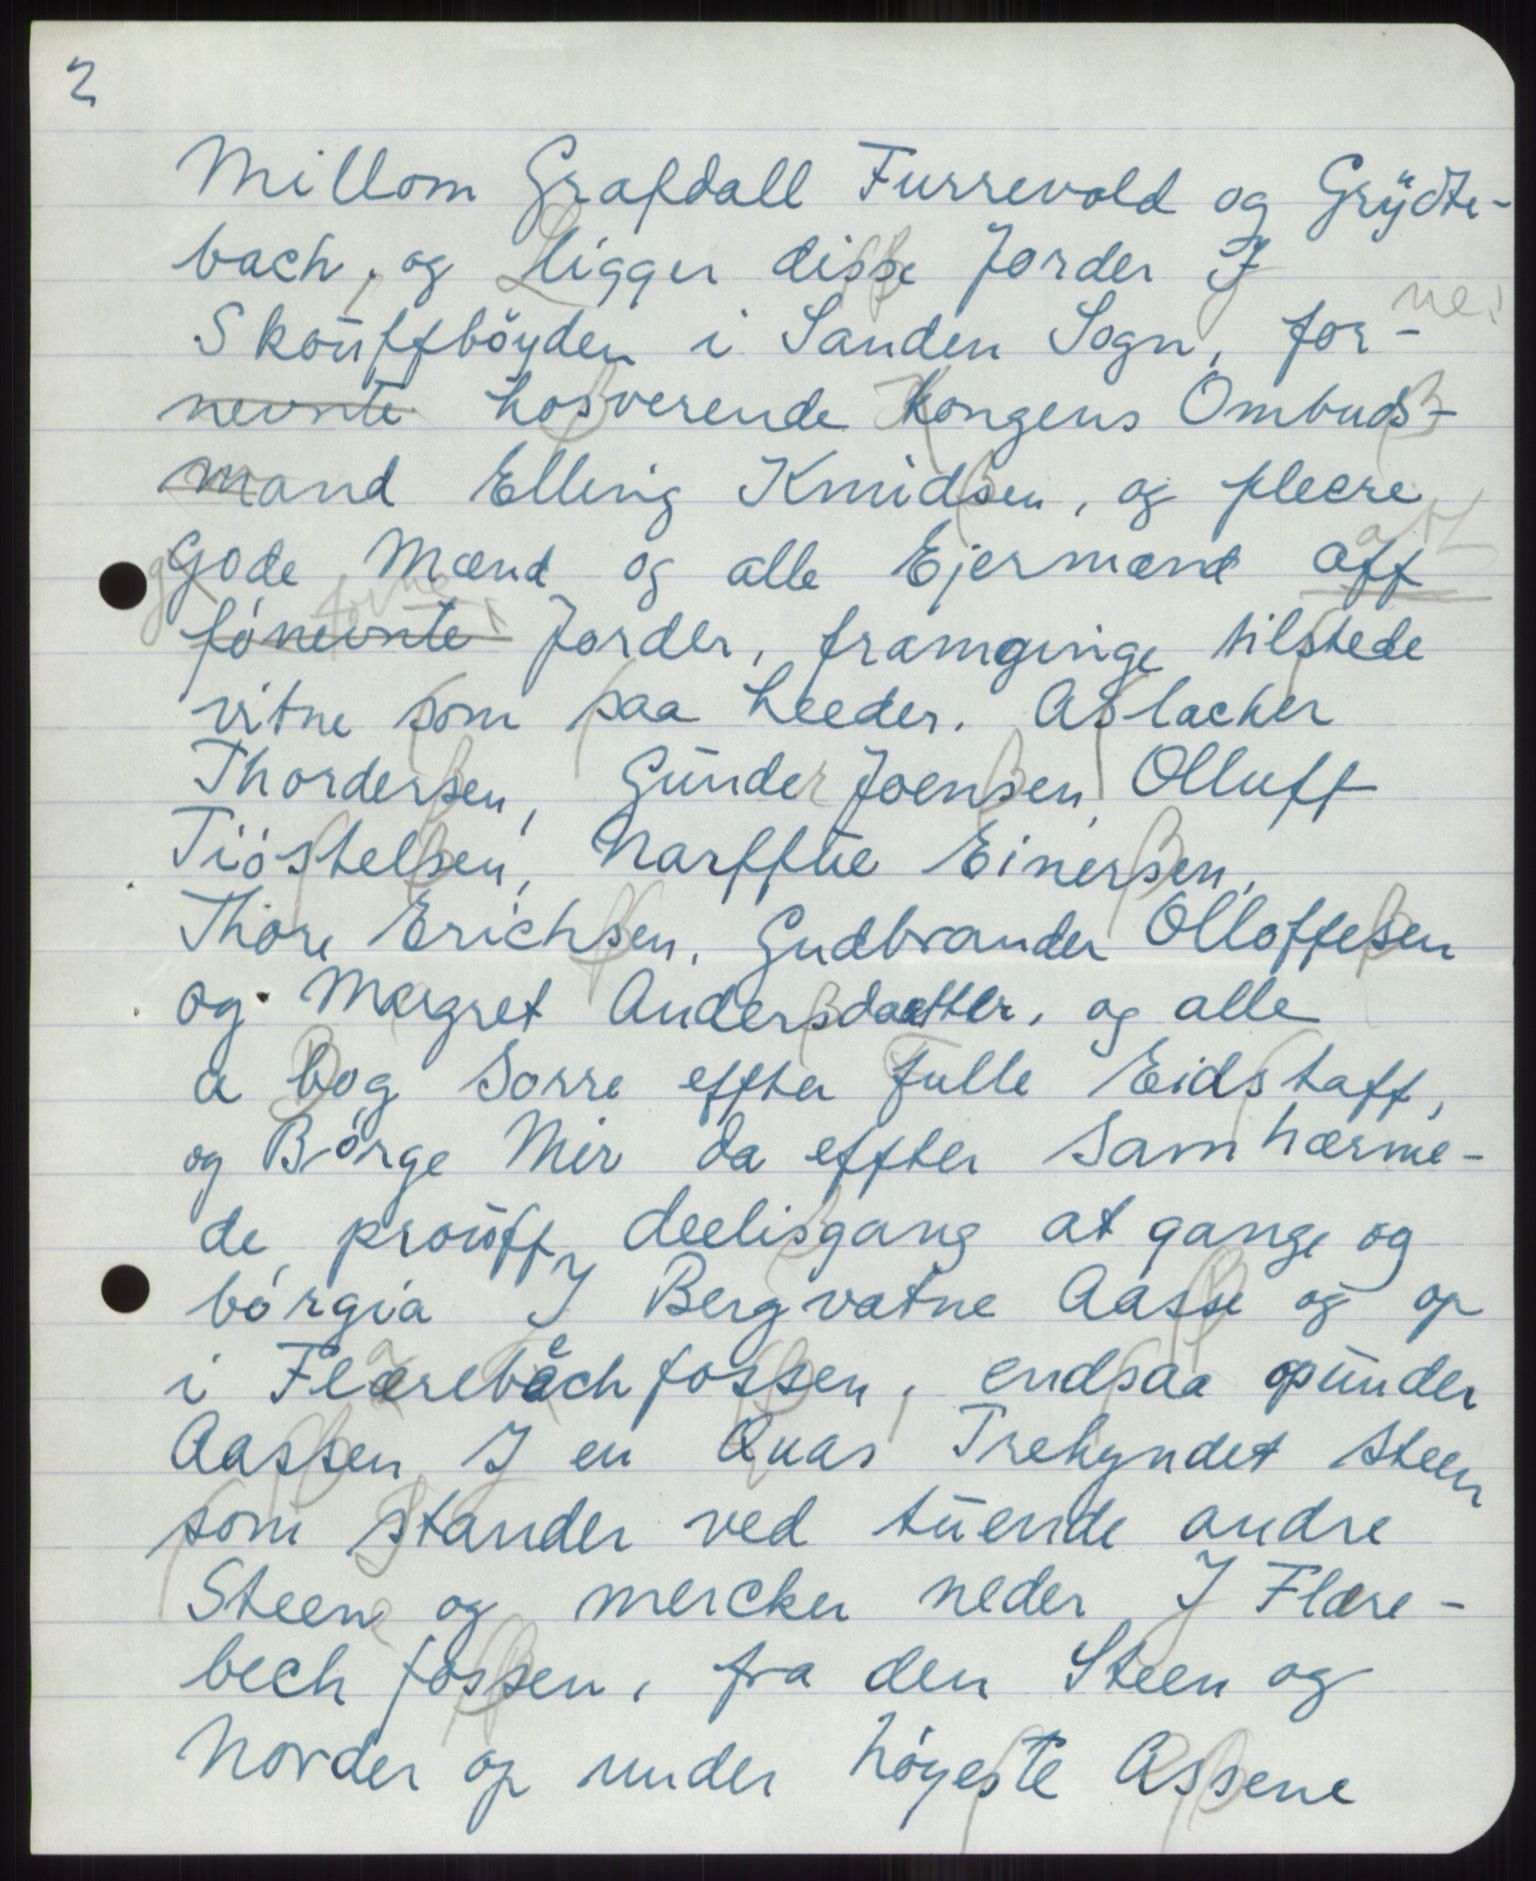 2
Millom Grafdall Furrevold og Grÿdte-
bach, og Lligger disse Jorder I
Skoŭffböyden i Sanden Sogn, for-
nevnte hosverende kongens Ombuds-
mand Elling Knŭdsen, og fleere
Gode Mænd og alle Ejermænd aff
fónevnte Jorder, framginge tilstede
vitne som saa heeder. Aslacher
Thordersen, Gŭnder Joensen, Olluff
Tióstelsen, Narffŭe Einersen,
Thore Erichsen, Gudbrander Olloffesen
og Margret Andersdaatter, og alle
a bog Sorre effter fulle Eidstaff,
og Börge Mir da effter Samhærme-
de, proŭff deelisgang at gange og
börgia I Bergvatne Aasse og op
i Flærebæch fossen, endsaa opŭnder
Aassen I en Quas Trehyndet Steen
som stander ved tŭende andre
Steene og mercker neder I Flære-
bech fossen, fra den Steen og
Norder op under höyeste Assene